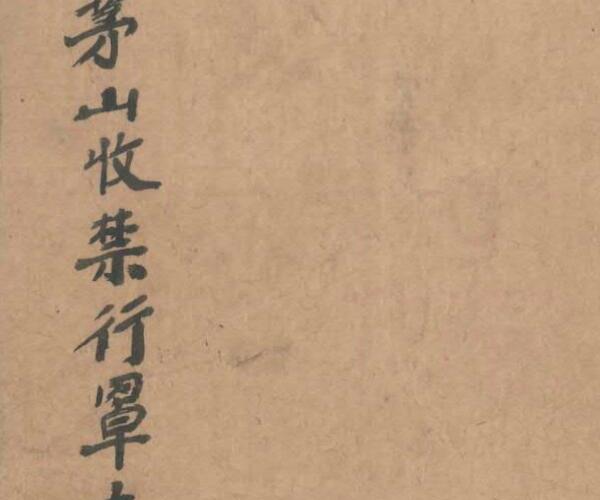 茅山收禁行罩